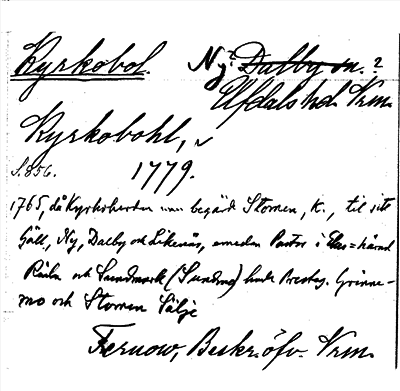 Kyrkobol. Ny? Dalby sn. ?
Älvdals hd. Vrm.
Kyrkobohl, v
S. 856. 1779.
1765, då Kyrkoherden begärd Stommen, K., til sitt
Gäll, Ny, Dalby och Likenäs, emedan Pastor i härad
och Sundmark (Sundmo) hade Prestag. Grinne-
mo och Stommen Sälje
Fernow, Beskr. öfv. Vrm.